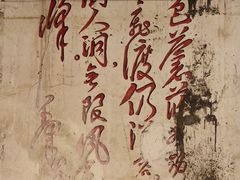 色蒼茫
飛渡仍從
人洞無限風
峰